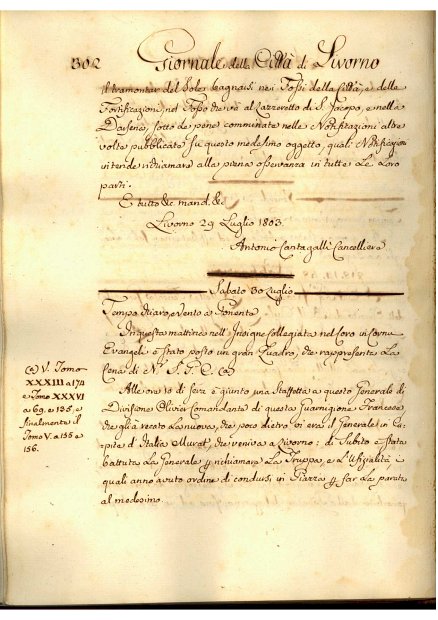 302 Giornale della Città di Livorno
il tramontar del Sole bagnarsi nei Fossi della Città, e delle
Fortificazioni, nel Fosso che va al Lazzeretto di S. Jacopo, e nella
Darsena, sotto le pene comminate nelle Notificazioni altre
volte pubblicate su questo medesimo oggetto, quali Notificazioni
s'intende richiamare alla piena osservanza in tutte Le Loro
parti.
E tutto &c. mand. &c.
Livorno 29 Luglio 1803.
Antonio Cantagalli Cancelliere
Sabato 30 Luglio
Tempo chiaro, e vento a Ponente
In questa mattina nell' Insigne Collegiata nel Coro in Cornu
Evangeli è stato posto un gran Quadro, che rappresenta La
Cena di N. S. G. C. (a)
(a) V. Tomo
XXXIII a 174
e Tomo XXXVI
a 69. e 125, e
finalmente il
Tomo V. a 155 e
156.
Alle ore 10 di sera è giunto una Staffetta a questo Generale di
Divisione Olivier Comandante di questa Guarnigione Francese
che gli à recato La nuova, che poco dietro vi era il Generale in Ca-
pite d'Italia Murat, che veniva a Livorno: di Subito è stata
battuta La Generale p richiamare La Truppa, e L'Ufizialità, i
quali anno avuto ordine di condursi in Piazza p far La parata
al medesimo.